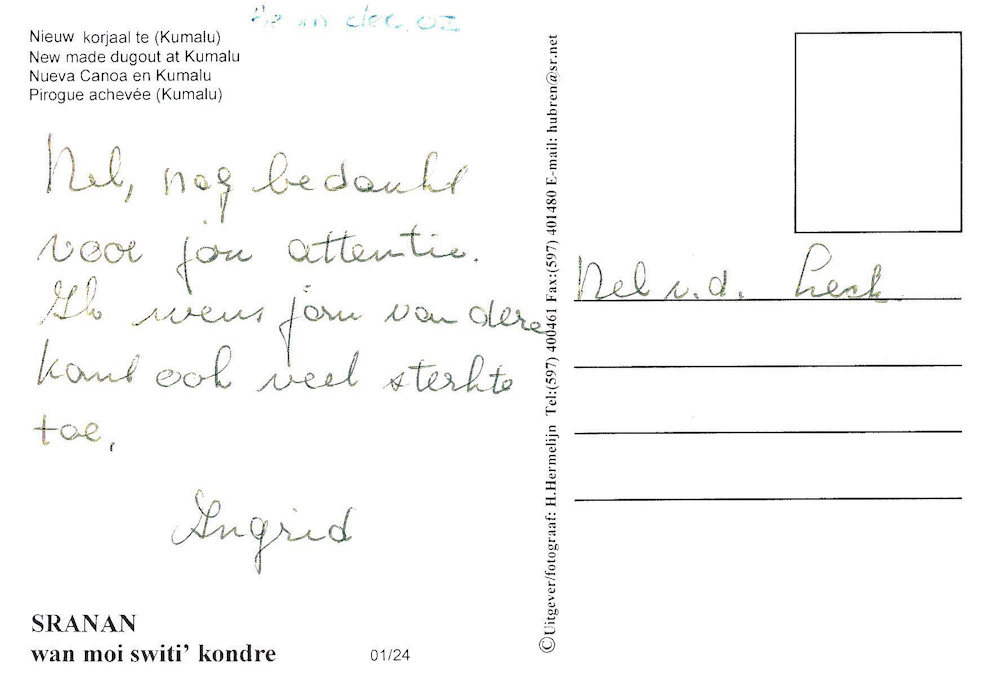 in dec. 02
Nieuw korjaal te (Kumalu)
New made dugout at Kumalu
Nueva Canoa en Kumalu
Pirogue achevée (Kumalu)
Nel, nog bedankt
voor jou attentie.
Ik wens jou van dere
kant ook veel sterkte
toe,
Ingrid
SRANAN
wan moi switi' kondre
01/24
©Uitgever/fotograaf: H.Hermelijn Tel:(597) 400461 Fax:(597) 401480 E-mail: hubren@sr.net
Nel v.d.